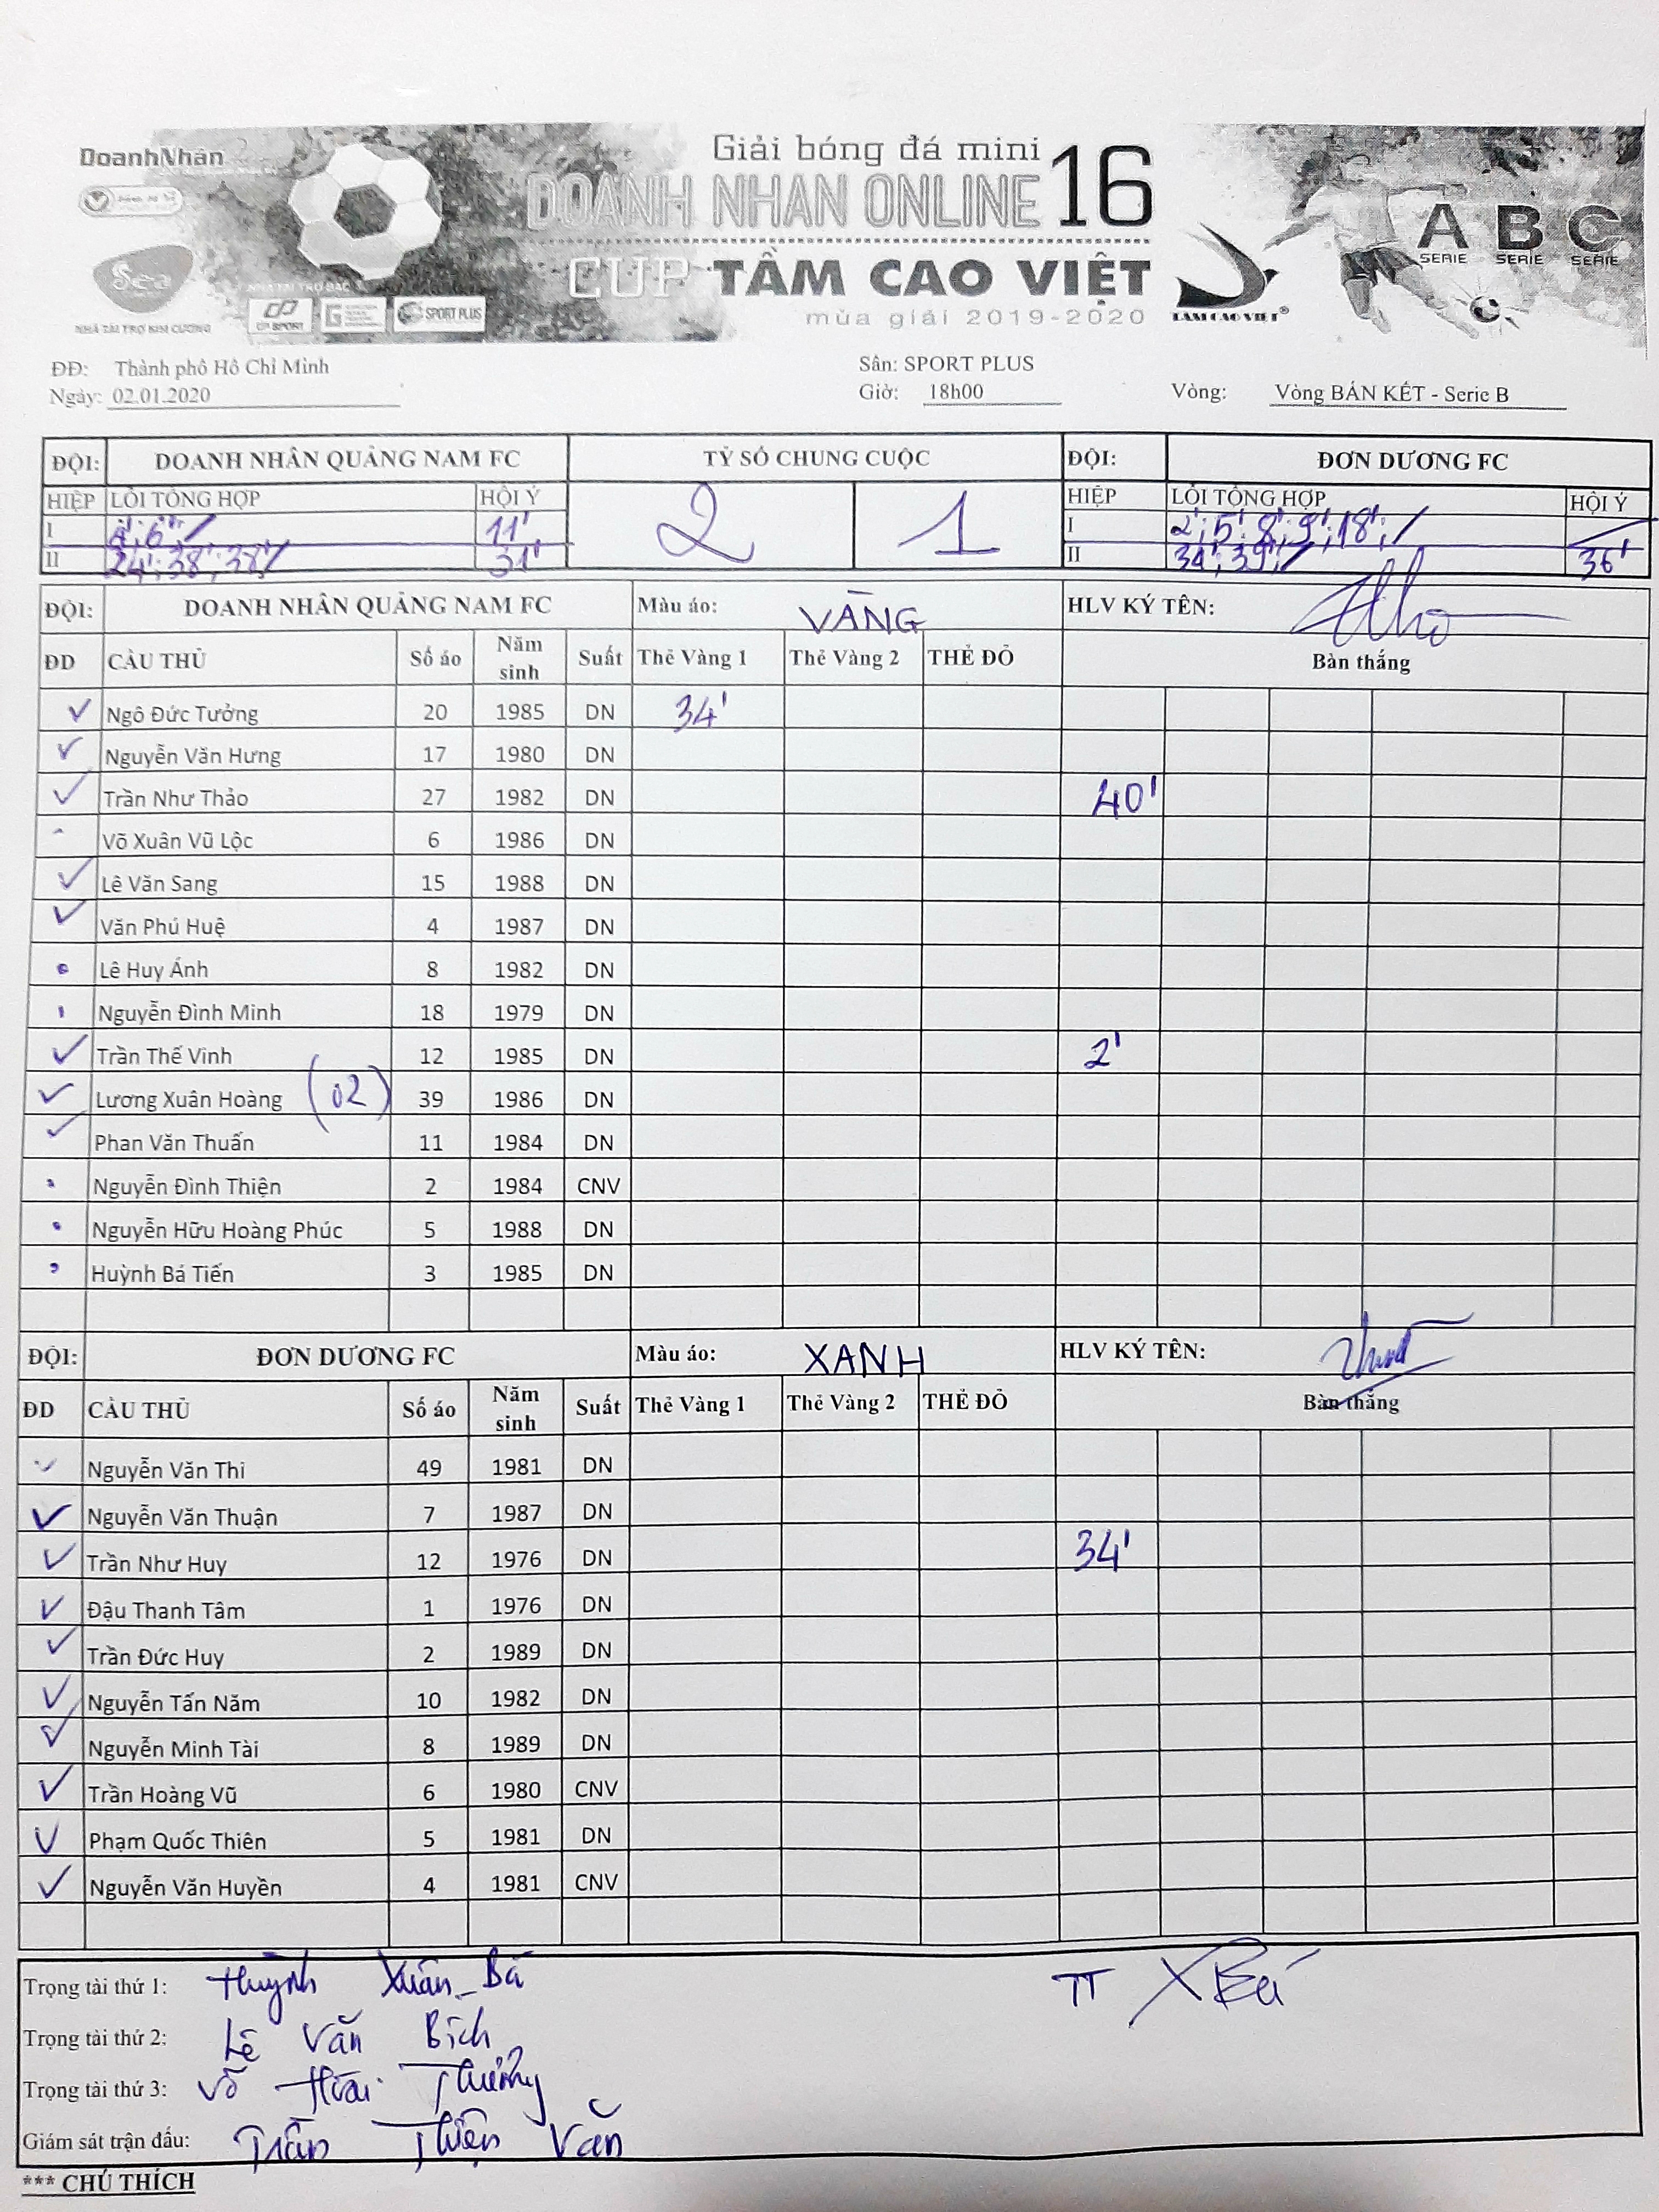 DoanhNhân
Giải bóng đá mini
DOANH NHAN ONLINE 16
CUP TẦM CAO VIỆT
mùa giải 2019-2020
Sea
NHÀ TÀI TRỢ KIM CƯƠNG
NHÀ TÀI TRỢ BẠC
CP SPORT
SPORT PLUS
TAM CAO VIET®
A B C
SERIE SERIE SERIE
ĐĐ: Thành phố Hồ Chí Minh Sân: SPORT PLUS
Ngày: 02.01.2020 Giờ: 18h00 Vòng: Vòng BÁN KẾT - Serie B
ĐỘI: DOANH NHÂN QUẢNG NAM FC TỶ SỐ CHUNG CUỘC ĐỘI: ĐƠN DƯƠNG FC
HIỆP LỖI TỔNG HỢP HỘI Ý 2 1 HIỆP LỖI TỔNG HỢP HỘI Ý
I 4'; 6'; / 11' I 2'; 5'; 8'; 9'; 18'; / /
II 24'; 38'; 38'/ 31' II 34'; 39'; / 36'
ĐỘI: DOANH NHÂN QUẢNG NAM FC Màu áo: VÀNG HLV KÝ TÊN:
ĐD CẦU THỦ Số áo Năm sinh Suất Thẻ Vàng 1 Thẻ Vàng 2 THẺ ĐỎ Bàn thắng
✓ Ngô Đức Tưởng 20 1985 DN 34'
✓ Nguyễn Văn Hưng 17 1980 DN
✓ Trần Như Thảo 27 1982 DN 40'
Võ Xuân Vũ Lộc 6 1986 DN
✓ Lê Văn Sang 15 1988 DN
✓ Văn Phú Huệ 4 1987 DN
Lê Huy Ánh 8 1982 DN
Nguyễn Đình Minh 18 1979 DN
✓ Trần Thế Vinh 12 1985 DN 2'
✓ Lương Xuân Hoàng (02) 39 1986 DN
✓ Phan Văn Thuấn 11 1984 DN
Nguyễn Đình Thiện 2 1984 CNV
Nguyễn Hữu Hoàng Phúc 5 1988 DN
Huỳnh Bá Tiến 3 1985 DN
ĐỘI: ĐƠN DƯƠNG FC Màu áo: XANH HLV KÝ TÊN:
ĐD CẦU THỦ Số áo Năm sinh Suất Thẻ Vàng 1 Thẻ Vàng 2 THẺ ĐỎ Bàn thắng
✓ Nguyễn Văn Thi 49 1981 DN
✓ Nguyễn Văn Thuận 7 1987 DN
✓ Trần Như Huy 12 1976 DN 34'
✓ Đậu Thanh Tâm 1 1976 DN
✓ Trần Đức Huy 2 1989 DN
✓ Nguyễn Tấn Năm 10 1982 DN
✓ Nguyễn Minh Tài 8 1989 DN
✓ Trần Hoàng Vũ 6 1980 CNV
✓ Phạm Quốc Thiên 5 1981 DN
✓ Nguyễn Văn Huyền 4 1981 CNV
Trọng tài thứ 1: Huỳnh Xuân Bá TT XBá
Trọng tài thứ 2: Lê Văn Bích
Trọng tài thứ 3: Võ Hoài Thương
Giám sát trận đấu: Trần Thiện Văn
*** CHÚ THÍCH